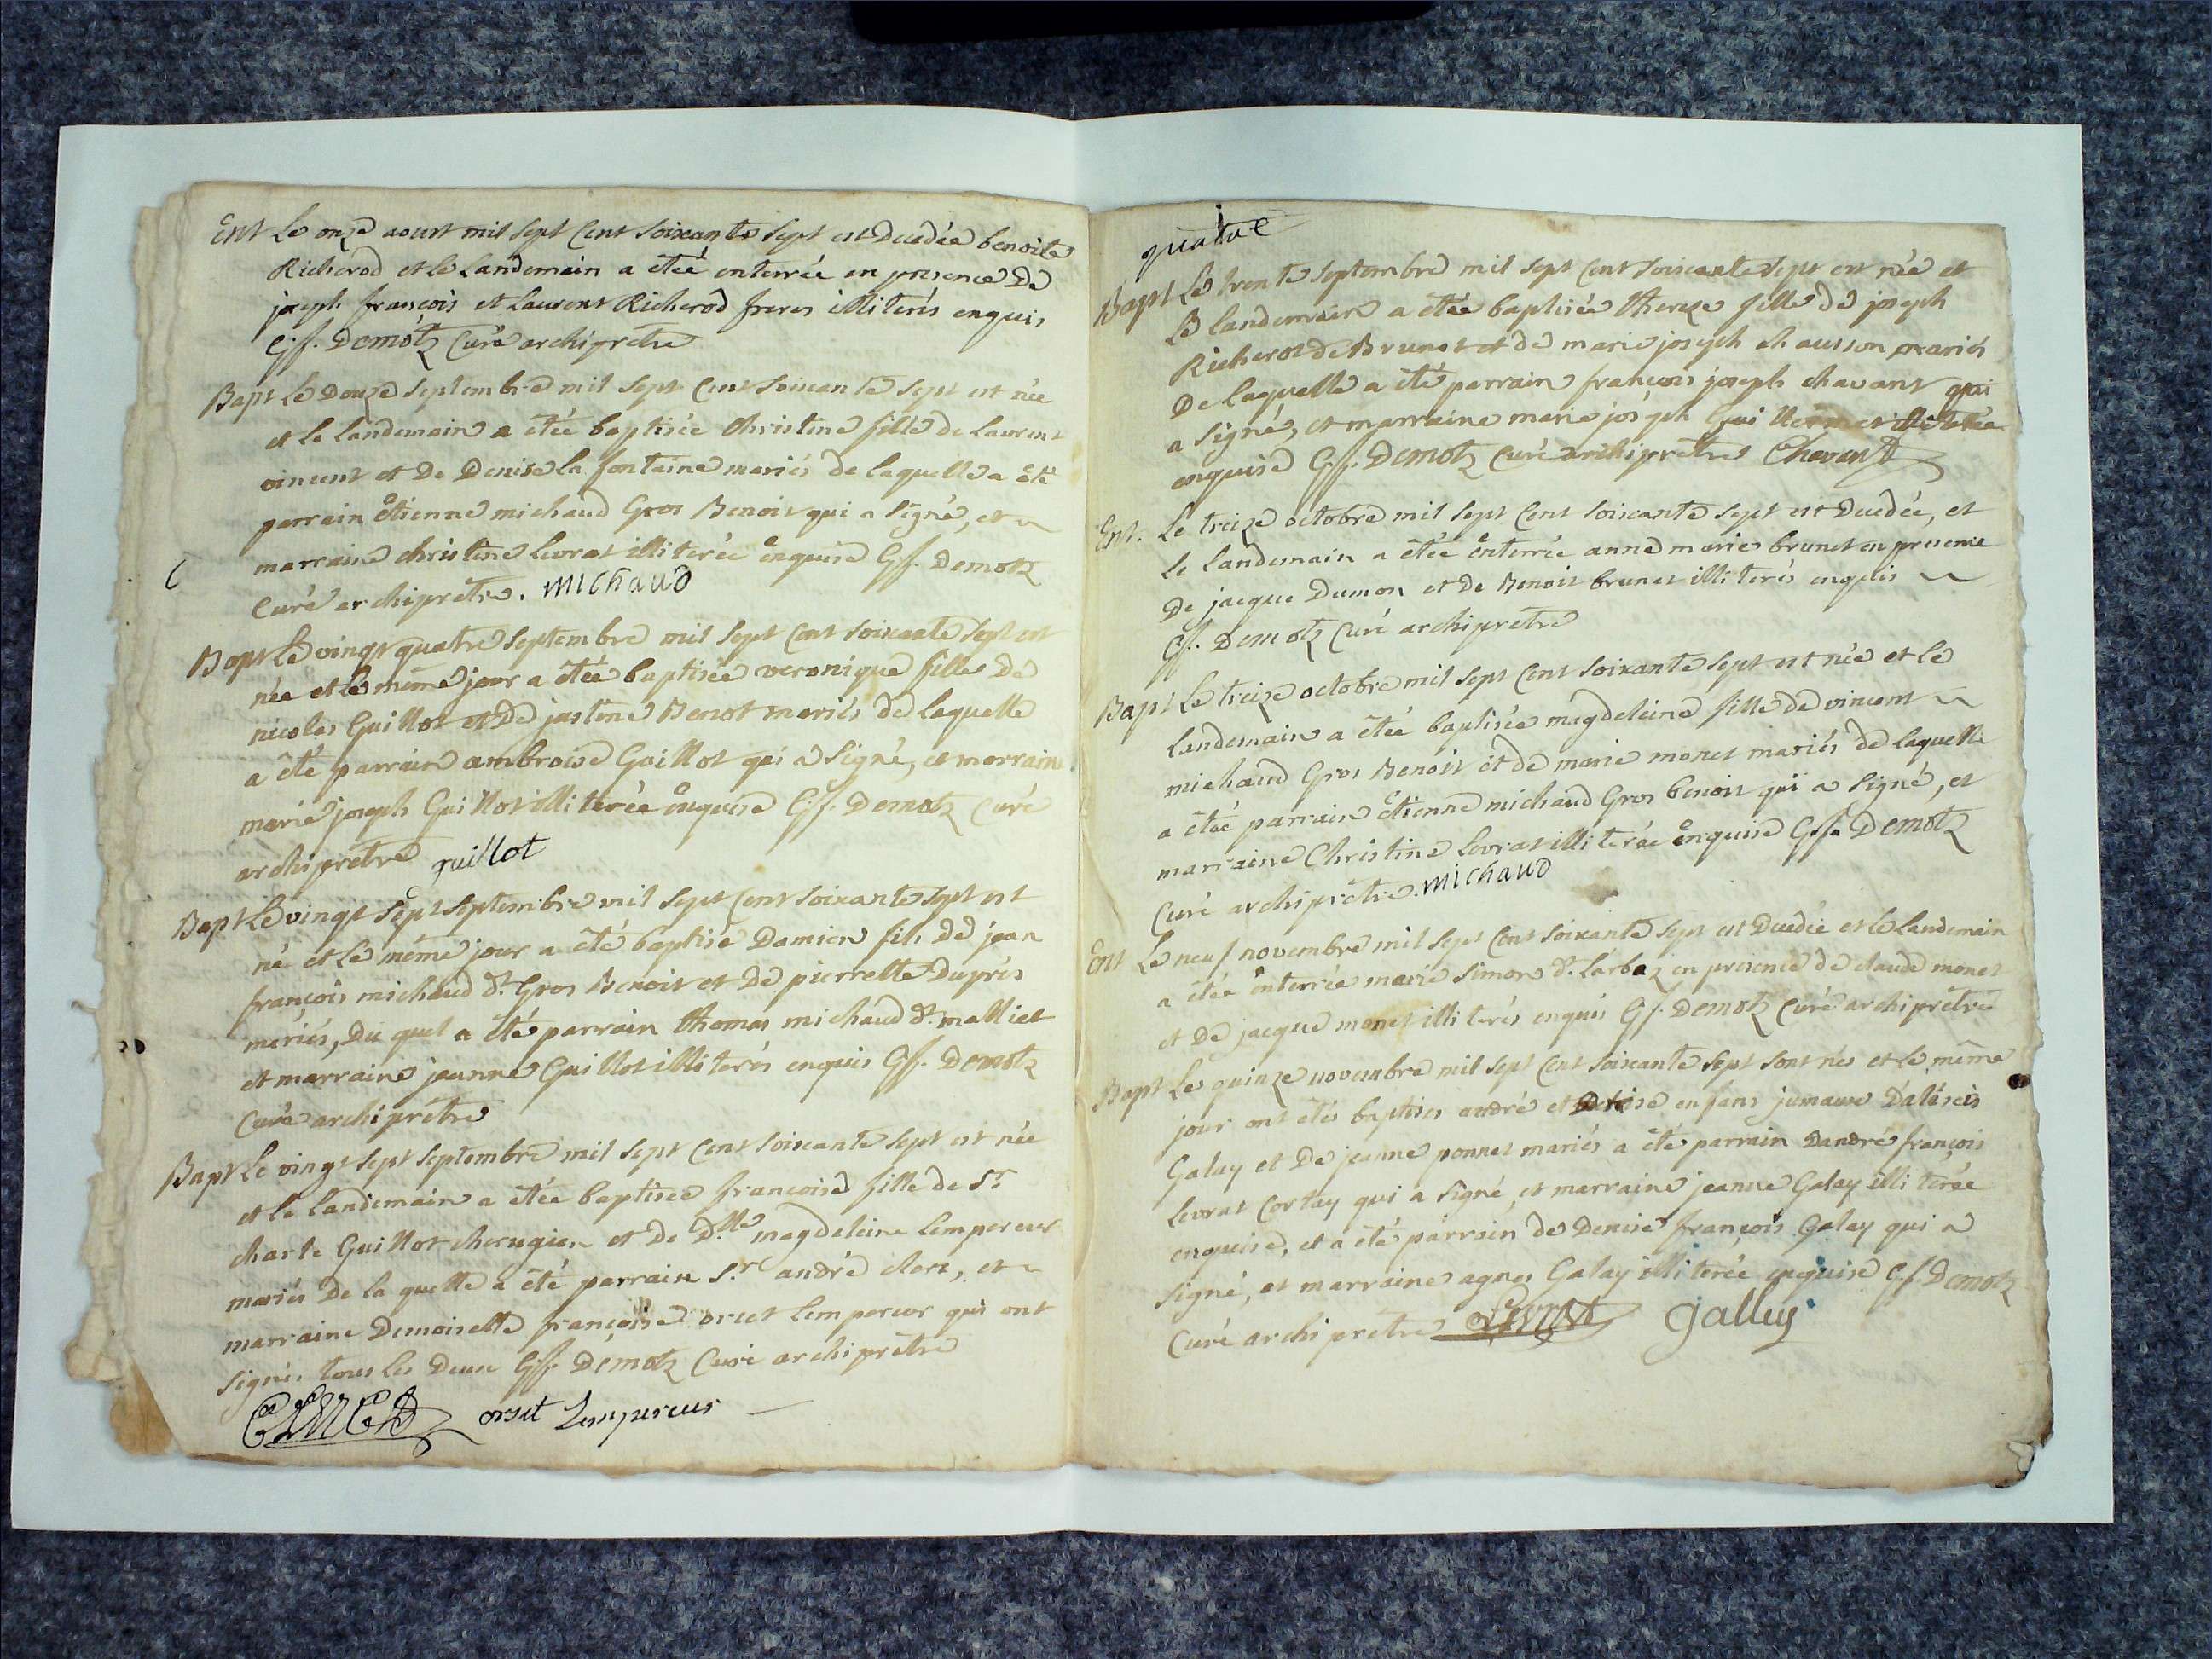 Ent Le onze aoust mil sept cent soixante sept est decedée benoite
Richerod et le landemain a étée enterrée en presence de
joseph françois et laurent Richerod freres illiterés enquis
G:f. Demotz Curé archiprêtre
Bapt Le douze septembre mil sept cent soixante sept est née
et le landemain a étée baptisée Christine fille de laurent
vincent et de Denise la fontaine mariés de laquelle a été
parrain étienne michaud Gros Benoit qui a signé, et
marraine christine levrat illiterée enquise G:f. Demotz
Curé archiprêtre. michaud
Bapt Le vingt quatre septembre mil sept cent soixante sept est
née et le même jour a étée baptisée veronique fille de
nicolas Guillot et de justine Benot mariés de laquelle
a été parrain ambroise Guillot qui a signé, et marraine
marie joseph Guillot illiterée enquise G:f. Demotz Curé
archiprêtre guillot
Bapt Le vingt sept septembre mil sept cent soixante sept est
né et le même jour a été baptisé Damien fils de jean
françois michaud dt Gros Benoit et de pierrette Duprés
mariés, du quel a été parrain thomas michaud dt malliet
et marraine jeanne Guillot illiterés enquis G:f. Demotz
Curé archiprêtre
Bapt Le vingt sept septembre mil sept cent soixante sept est née
et le landemain a étée baptisée francoise fille de Sr
charle Guillot cherugien et de Dlle magdeleine lempereur
mariés de la quelle a été parrain Sr andré clerc, et
marraine Demoiselle françoise orset lempereur qui ont
signés tous les deux G:f. Demotz Curé archiprêtre
CLERC orset Lempereur
quatre
Bapt Le trente septembre mil sept cent soixante sept est née et
le landemain a étée baptisée thereze fille de joseph
Richerot de Brunet et de marie joseph chausson mariés
De laquelle a été parrain françois joseph chavant qui
a signé, et marraine marie joseph Guillermet illiterée
enquise G:f. Demotz Curé archiprêtre Chevent
Ent. Le treize octobre mil sept cent soixante sept est decedée, et
le landemain a étée enterrée anne marie brunet en presence
de jacque Dumon et de Benoit brunet illiterés enquis
G:f. Demotz Curé archiprêtre
Bapt Le treize octobre mil sept cent soixante sept est née et le
landemain a étée baptisée magdeleine fille de vincent
michaud Gros Benoit et de marie monet mariés de laquelle
a étée parrain étienne michaud Gros benoit qui a signé, et
marraine Christine levrat illiterée enquise G:f. Demotz
Curé archiprêtre. michaud
Ent Le neuf novembre mil sept cent soixante sept est decedée et le landemain
a étée enterrée marie simon dt larbaz en presence de claude monet
et de jacque monet illiterés enquis G:f. Demotz Curé archiprêtre
Bapt Le quinze novembre mil sept cent soixante sept sont nés et le même
jour ont étés baptises andré et Denise enfans jumaux D'aléxis
Galay et de jeanne ponnet mariés a été parrain dandré françois
levrat Cortay qui a signé, et marraine jeanne Galay illiterée
enquise, et a été parrain de Denise françois Galay qui a
signé, et marraine agnes Galay illiterée enquise G:f. Demotz
Curé archiprêtre Levrat galley